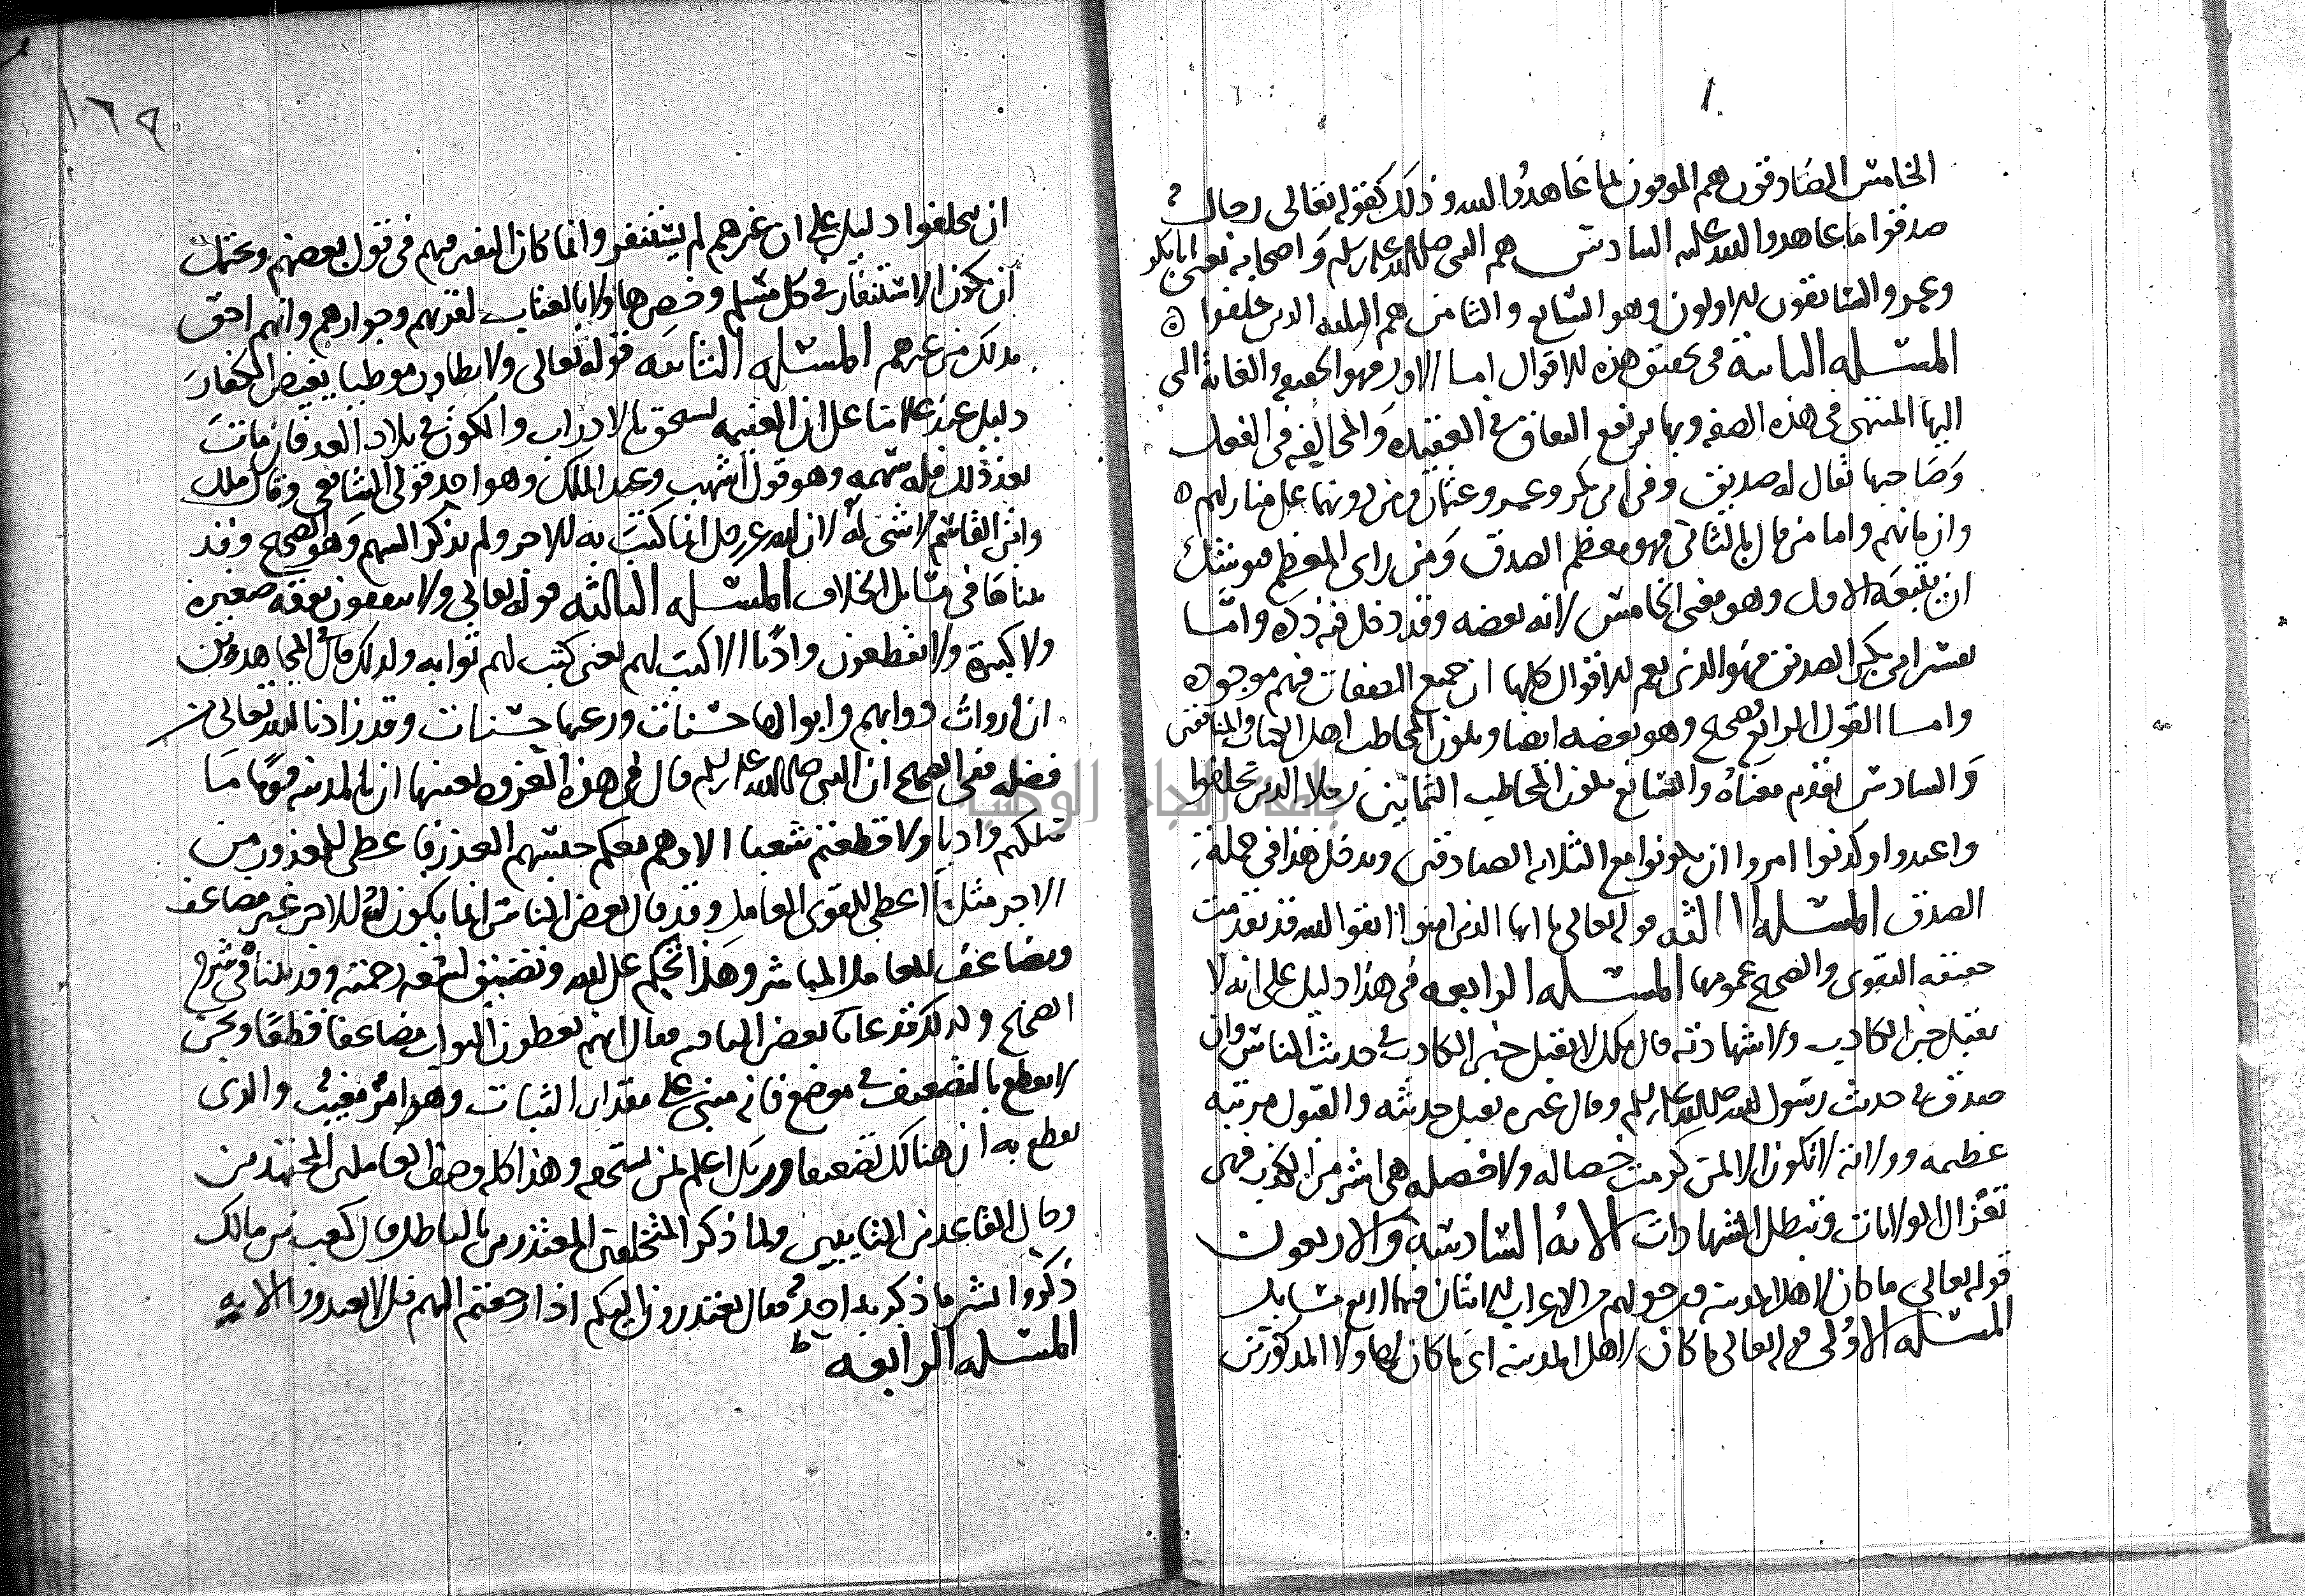 الخامس الصادقون هم الموفون بما عاهدوا الله وذلك كقوله تعالى رجال
صدقوا ما عاهدوا الله عليه السادس هم النبي صلى الله عليه وسلم واصحابه يعني ابا بكر
وعمر والسابقون الاولون وهو السابع والثامن هم الثلثه الذين خلفوا ٥
المسله الثانية في تحقيق هذه الاقوال اما الاول فهو الحقيقه والغاية التي
اليها المنتهى في هذه الصفه وبها يرتفع النفاق في العقيده والمخالفه في الفعل
وصاحبها يقال له صديق وفي ابي بكر وعمر وعثمان ومن دونهما على منازلهم ٥
وازمانهم واما من قال بالثاني فهو معظم الصدق ومن راى المعظم فيوشك
ان يتبعه الاقل وهو معنى الخامس لانه بعضه وقد دخل فيه ذكره واما
تفسير ابي بكر الصديق فهو الذي يعم الاقوال كلها ان جميع الصفات فيهم موجوده
واما القول الرابع فصحيح وهو بعضه ايضا ويكون المخاطب اهل الكتاب والمنافقين
والسادس تقدم معناه والسابع يكون المخاطب الثمانين رجلا الذين تخلفوا
واعتذروا وكذبوا امروا ان يكونوا مع الثلاثه الصادقين ويدخل هذا في جملة
الصدق المسله الثالثه قوله تعالى يا ايها الذين امنوا اتقوا الله قد تقدمت
حقيقه التقوى والصحيح عمومها المسله الرابعه في هذا دليل على انه لا
يقبل خبر الكاذب ولا شهادته قال ملك لا يقبل خبر الكاذب في حديث الناس وان
صدق في حديث رسول الله صلى الله عليه وسلم وقال غيره يقبل حديثه والقبول مرتبه
عظيمه وولاية لا تكون الا لمن كرمت خصاله ولا خصله هي اشر من الكذب فهي
تعزل الولايات وتبطل الشهادات الايه السادسة والاربعون
قوله تعالى ما كان لاهل المدينه ومن حولهم من الاعراب الايتان فيها اربع مسايل
المسله الاولى قوله تعالى ما كان لاهل المدينه اي ما كان لهاولا المذكورين
١٦٥
ان يتخلفوا دليل على ان غيرهم لم يستنفر وانما كان النفير فيهم في قول بعضهم ويحتمل
ان يكون الاستنفار في كل مسلم وخص هاولا بالعتاب لقربهم وجوارهم وانهم احق
بذلك من غيرهم المسله الثانيه قوله تعالى ولا يطاون موطيا يغيض الكفار
دليل عند علمائنا على ان الغنيمه تستحق بالادراب والكون في بلاد العدو فان مات
بعد ذلك فله سهمه وهو قول اشهب وعبد الملك وهو احد قولي الشافعي وقال ملك
وابن القاسم لا شي له لان الله عز وجل انما كتب به الاجر ولم يذكر السهم وهو الصحيح وقد
بيناها في مسايل الخلاف المسله الثالثه قوله تعالى ولا ينفقون نفقه صغيرة
ولا كبيرة ولا يقطعون واديا الا كتب لهم يعني كتب لهم ثوابه ولذلك قال في المجاهدين
ان ارواث دوابهم وابوالها حسنات ورعيها حسنات وقد زادنا الله تعالى من
فضله ففي الصحيح ان النبي صلى الله عليه وسلم قال في هذه الغزوه بعينها ان بالمدينه قوما ما
سلكتم واديا ولا قطعتم شعبا الا وهم معكم حبسهم العذر فاعطى للمعذور من
الاجر مثل ما اعطى للقوي العامل وقد قال بعض الناس انما يكون له الاجر غير مضاعف
ويضاعف للعامل المباشر وهذا تحكم على الله وتضييق لسعه رحمته وقد بيناه في شرح
الصحيح ولذلك قد عاب بعض الناس فيه فقال انهم يعطون الثواب مضاعفا قطعا ونحن
لا نقطع بالتضعيف في موضع فانه مبني على مقدار النيات وهو امر مغيب والذي
نقطع به ان هنالك تضعيفا وربك اعلم بمن يستحقه وهذا كله وصف العاملين المجتهدين
وحال القاعدين التايبين ولما ذكر المتخلفين المعتذرين بالباطل قال كعب بن مالك
ذكروا بشر ما ذكر به احد فقال يعتذرون اليكم اذا رجعتم اليهم قل لا تعتذروا الايه
المسله الرابعه
جامعة النجاح الوطنية